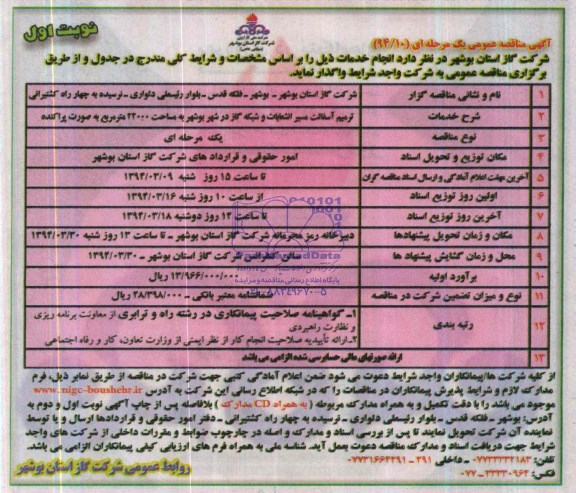 نوبت اول
شرکت ملی گاز ایران
شرکت گاز استان بوشهر
(سهامی خاص)
آگهی مناقصه عمومی یک مرحله ای (۹۴/۱۰)
شرکت گاز استان بوشهر در نظر دارد انجام خدمات ذیل را بر اساس مشخصات و شرایط کلی مندرج در جدول و از طریق
برگزاری مناقصه عمومی به شرکت واجد شرایط واگذار نماید.
۱ نام و نشانی مناقصه گزار شرکت گاز استان بوشهر – بوشهر – فلکه قدس – بلوار رئیسعلی دلواری – نرسیده به چهار راه کشتیرانی
۲ شرح خدمات ترمیم آسفالت مسیر انشعابات و شبکه گاز در شهر بوشهر به مساحت ۲۲۰۰۰ مترمربع به صورت پراکنده
۳ نوع مناقصه یک مرحله ای
۴ مکان توزیع و تحویل اسناد امور حقوقی و قرارداد های شرکت گاز استان بوشهر
۵ آخرین مهلت اعلام آمادگی و ارسال اسناد مناقصه گران تا ساعت ۱۵ روز شنبه ۱۳۹۴/۰۳/۰۹
۶ اولین روز توزیع اسناد از ساعت ۱۰ روز شنبه ۱۳۹۴/۰۳/۱۶
۷ آخرین روز توزیع اسناد تا ساعت ۱۴ روز دوشنبه ۱۳۹۴/۰۳/۱۸
۸ مکان و زمان تحویل پیشنهادها دبیرخانه رمز محرمانه شرکت گاز استان بوشهر – تا ساعت ۱۳ روز شنبه ۱۳۹۴/۰۳/۳۰
۹ محل و زمان گشایش پیشنهاد ها سالن کنفرانس شرکت گاز استان بوشهر – ۱۳۹۴/۰۳/۳۰
۱۰ برآورد اولیه ۱۳/۹۶۶/۰۰۰/۰۰۰ ریال
۱۱ نوع و میزان تضمین شرکت در مناقصه ضمانتنامه معتبر بانکی – ۲۸/۳۹۸/۰۰۰ ریال
۱۲ رتبه بندی ۱ـ گواهینامه صلاحیت پیمانکاری در رشته راه و ترابری از معاونت برنامه ریزی
و نظارت راهبردی
۲ـ ارائه تأییدیه صلاحیت انجام کار از نظر ایمنی از وزارت تعاون، کار و رفاه اجتماعی
۱۳ ارائه صورتهای مالی حسابرسی شده الزامی می باشد
از کلیه شرکت ها/پیمانکاران واجد شرایط دعوت می شود ضمن اعلام آمادگی کتبی جهت شرکت در مناقصه از طریق نمابر ذیل، فرم
مدارک لازم و شرایط پذیرش پیمانکاران در مناقصات را که در شبکه اطلاع رسانی این شرکت به آدرس www.nigc-boushehr.ir
موجود می باشد را با دقت تکمیل و به همراه مدارک مربوطه ( به همراه CD مدارک ) بلافاصله پس از چاپ آگهی نوبت اول و دوم به
آدرس: بوشهر – فلکه قدس – بلوار رئیسعلی دلواری – نرسیده به چهار راه کشتیرانی – دفتر امور حقوقی و قراردادها ارسال و یا توسط
نماینده آن شرکت تحویل نمایند تا پس از بررسی اسناد و مدارک و اصله در چارچوب ضوابط و مقررات داخلی از شرکت های واجد
شرایط جهت دریافت اسناد و مدارک مناقصه دعوت بعمل آید. شناسه ملی به همراه فرم های ارزیابی کیفی پیمانکاران الزامی می باشد.
تلفن: ۰۷۷۳۳۳۲۱۸۳ – داخلی ۲۹۱ – ۰۷۷۳۱۶۶۴۲۹۱
فکس: ۳۳۳۳۰۹۶۴ – ۰۷۷
روابط عمومی شرکت گاز استان بوشهر